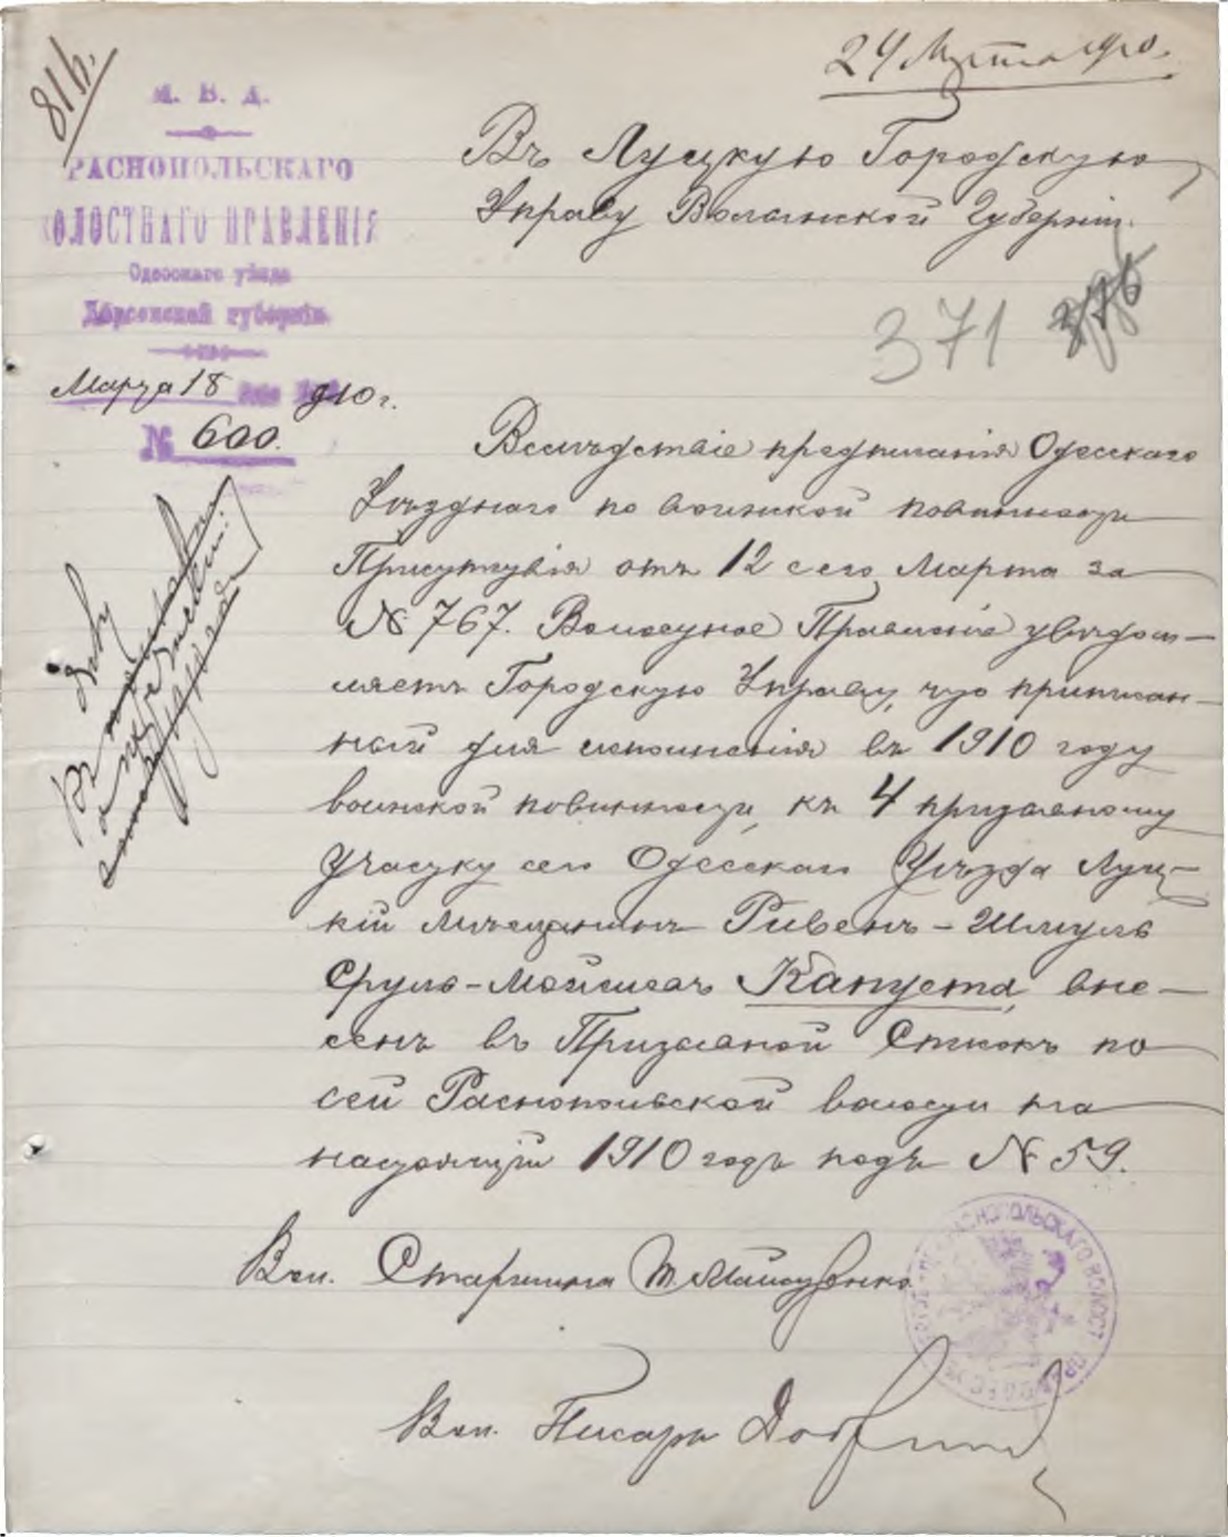 24 Марта 1910.
816.
М. В. Д.
РАСНОПОЛЬСКАГО
ВОЛОСТНАГО ПРАВЛЕНІЯ
Одесскаго уѣзда
Херсонской губерніи.
Марта 18 дня 1910 г.
№ 600.
Въ Луцкую Городскую
Управу Волынской Губерніи.
371 376
Вслѣдствіе предписанія Одесскаго
Уѣзднаго по воинской повинности
Присутствія отъ 12 сего Марта за
№ 767. Волостное Правленіе увѣдом–
ляетъ Городскую Управу, что приписан–
ный для исполненія въ 1910 году
воинской повинности, къ 4 призывному
участку сего Одесскаго Уѣзда Луц–
кій мѣщанинъ Ривенъ–Шмуль
Сруль–Мойшевъ Капуста, вне–
сенъ въ Призывной Списокъ по
сей Распопольской волости на
настоящій 1910 годъ подъ № 59.
Вол. Старшина
Вол. Писарь